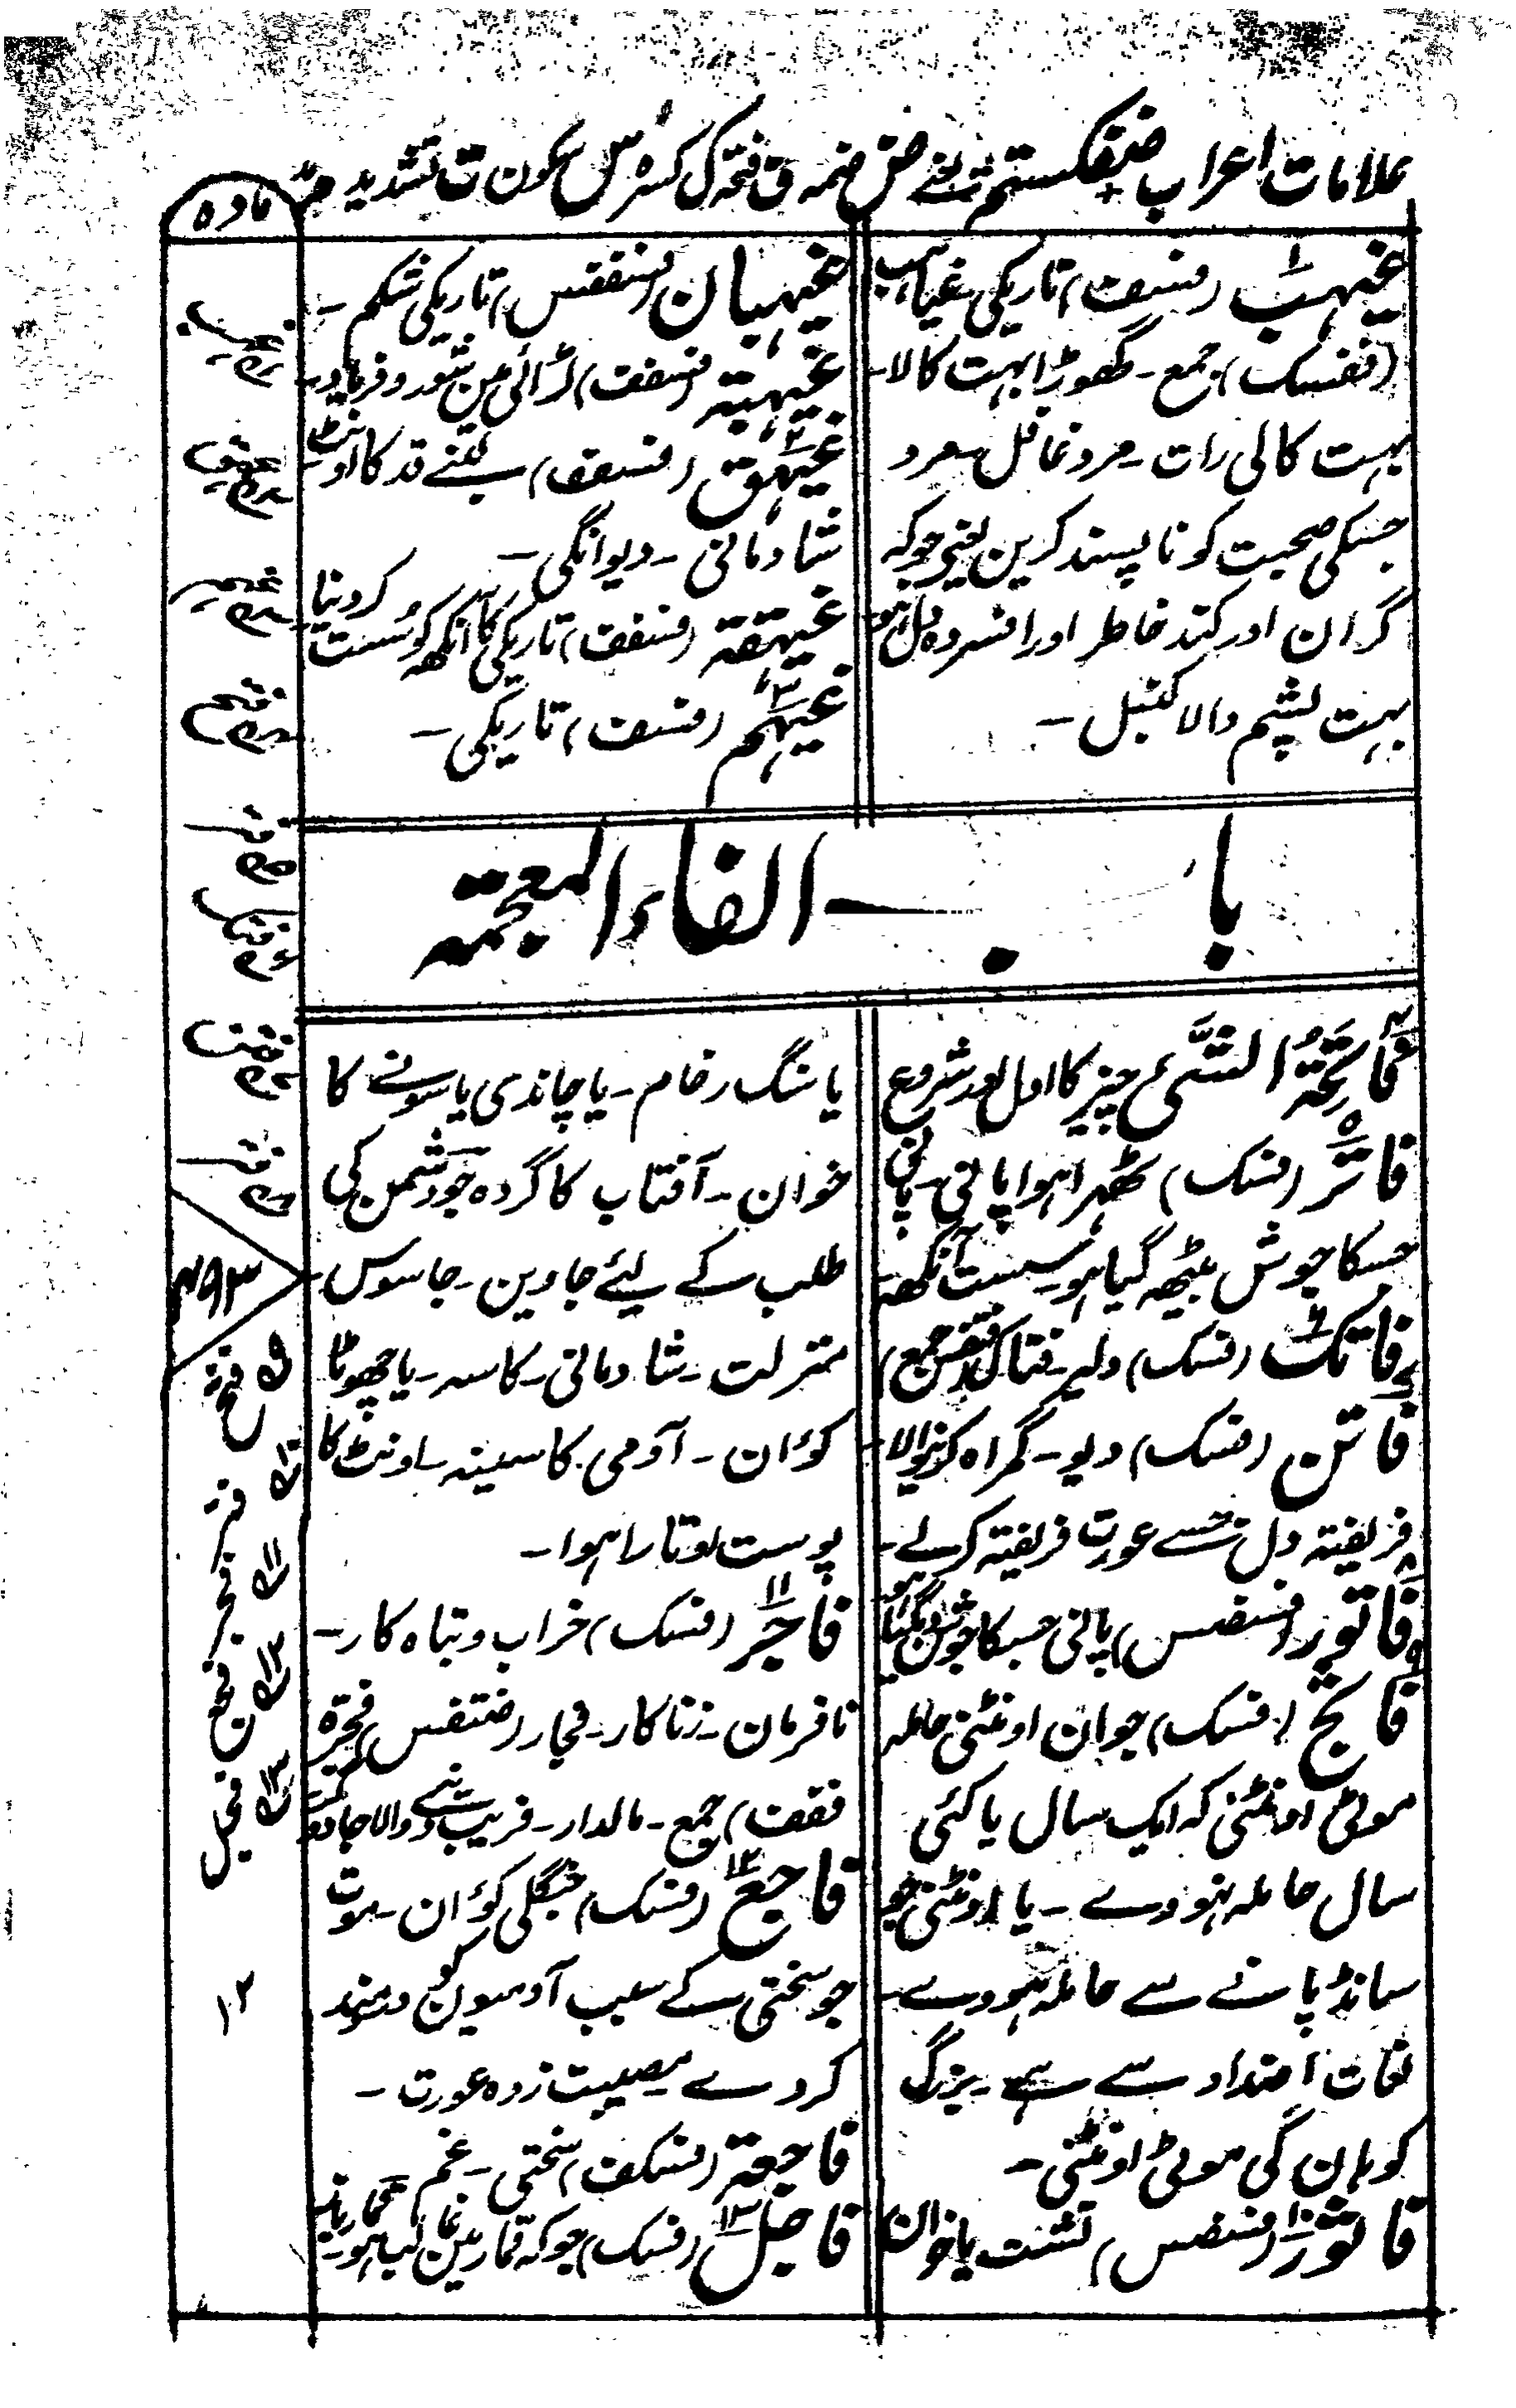 علامات اعراب ضفکستم ض ضمہ ف فتحہ ک کسرہ س سکون ت تشدید م مد
مادہ
غیہب۱ (فسف) تاریکی۔ غیاہب
(ففسک) جمع۔ گھوڑا بہت کالا۔
بہت کالی رات۔ مرد غافل۔ مرد
جسکی صحبت کو ناپسند کرین یعنی جو کہ
گران اور کند خاطر اور افسردہ دل ہو۔
بہت پشم والا کنبل۔
غیہبان (فسففس) تاریکی شکم۔
غیہبۃ (فسففف) لڑائی مین شور و فریاد۔
غیہق۲ (فسفف) لنبے قد کا اونٹ۔
شادمانی۔ دیوانگی۔
غیہقۃ (فسففف) تاریکی کا آنکھ کو سست کر دینا
غیہم۳ (فسف) تاریکی۔
باب الفاء المعجمۃ
فَاتِحَۃُ الشَّیْء۴ چیز کا اول اور شروع
فاتر۵ (فسک) ٹھہرا ہوا پانی۔ پانی
جسکا جوش بیٹھ گیا ہو۔ سست آنکھ۔
فاتک۶ (فسک) دلیر۔ فتاک (ضتفس جمع)
فاتن۷ (فسک) دیو۔ گمراہ کرنیوالا۔
فریفتہ دل جسے عورت فریفتہ کر لے۔
فاتور۸ (فسضس) پانی جسکا جوش
فاثج۹ (فسک) جوان اونٹنی حاملہ
موٹی اونٹنی کہ ایک سال یا کئی
سال حاملہ نہووے۔ یا اونٹنی جو
سانڈ پانے سے حاملہ ہووے۔
لغات اضداد سے ہے۔ بزرگ
کوہان کی موٹی اونٹنی۔
فاثور۱۰ (فسضس) تشت یا خوان
یا سنگ رخام۔ یا چاندی یا سونے کا
خوان۔ آفتاب کا گردہ جو دشمن کی
طلب کے لیئے جاوین۔ جاسوس۔
منزلت۔ شادمانی۔ کاسہ۔ یا چھوٹا
کوان۔ آدمی کا سینہ۔ اونٹ کا
پوست اوتارا ہوا۔
فاجر۱۱ (فسک) خراب و تباہ کار۔
نافرمان۔ زنا کار۔ فجار (ضتفس) فجرۃ
ففف) جمع۔ مالدار۔ فریب دینے والا جادوگر
فاجع۱۲ (فسک) جنگلی کوان۔ موت
جو سختی کے سبب آدمیون کو دردمند
کر دے۔ مصیبت زدہ عورت۔
فاجعۃ (فسکف) سختی۔ غم
فاجل۱۳ (فسک) جو کہ قمار مین غالب ہو۔ قمار باز
۱ غہب
۲ غہق
۳ غہم
۴ فتح
۵ فتر
۶ فتک
۷ فتن
۸ فتر
۳۹۳
۹ فثج
۱۰ فثر
۱۱ فجر
۱۲ فجع
۱۳ فجل
۱۲